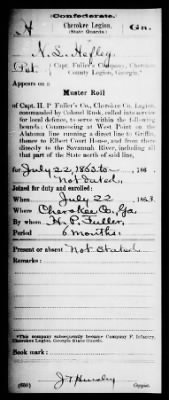 Confederate.
H Cherokee Legion, Ga.
(State Guards.)
N. L. Hefley
Pvt, Capt. Fuller's Company, Cherokee
County Legion, Georgia.*
Appears on a
Muster Roll
of Capt. H. P. Fuller's Co., Cherokee Co. Legion,
commanded by Colonel Rusk, called into service
for local defense, to serve within the following
bounds: Commencing at West Point on the
Alabama line running a direct line to Griffin,
thence to Elbert Court House, and from there
directly to the Savannah River, including all
that part of the State north of said line,
for July 22, 1863. to , 186
Not dated.
Joined for duty and enrolled:
When July 22, 1863.
Where Cherokee Co, Ga.
By whom H. P. Fuller,
Period 6 months.
Present or absent Not Stated.
Remarks:
*This company subsequently became Company F, Infantry,
Cherokee Legion, Georgia State Guards.
Book mark:
Copyist.